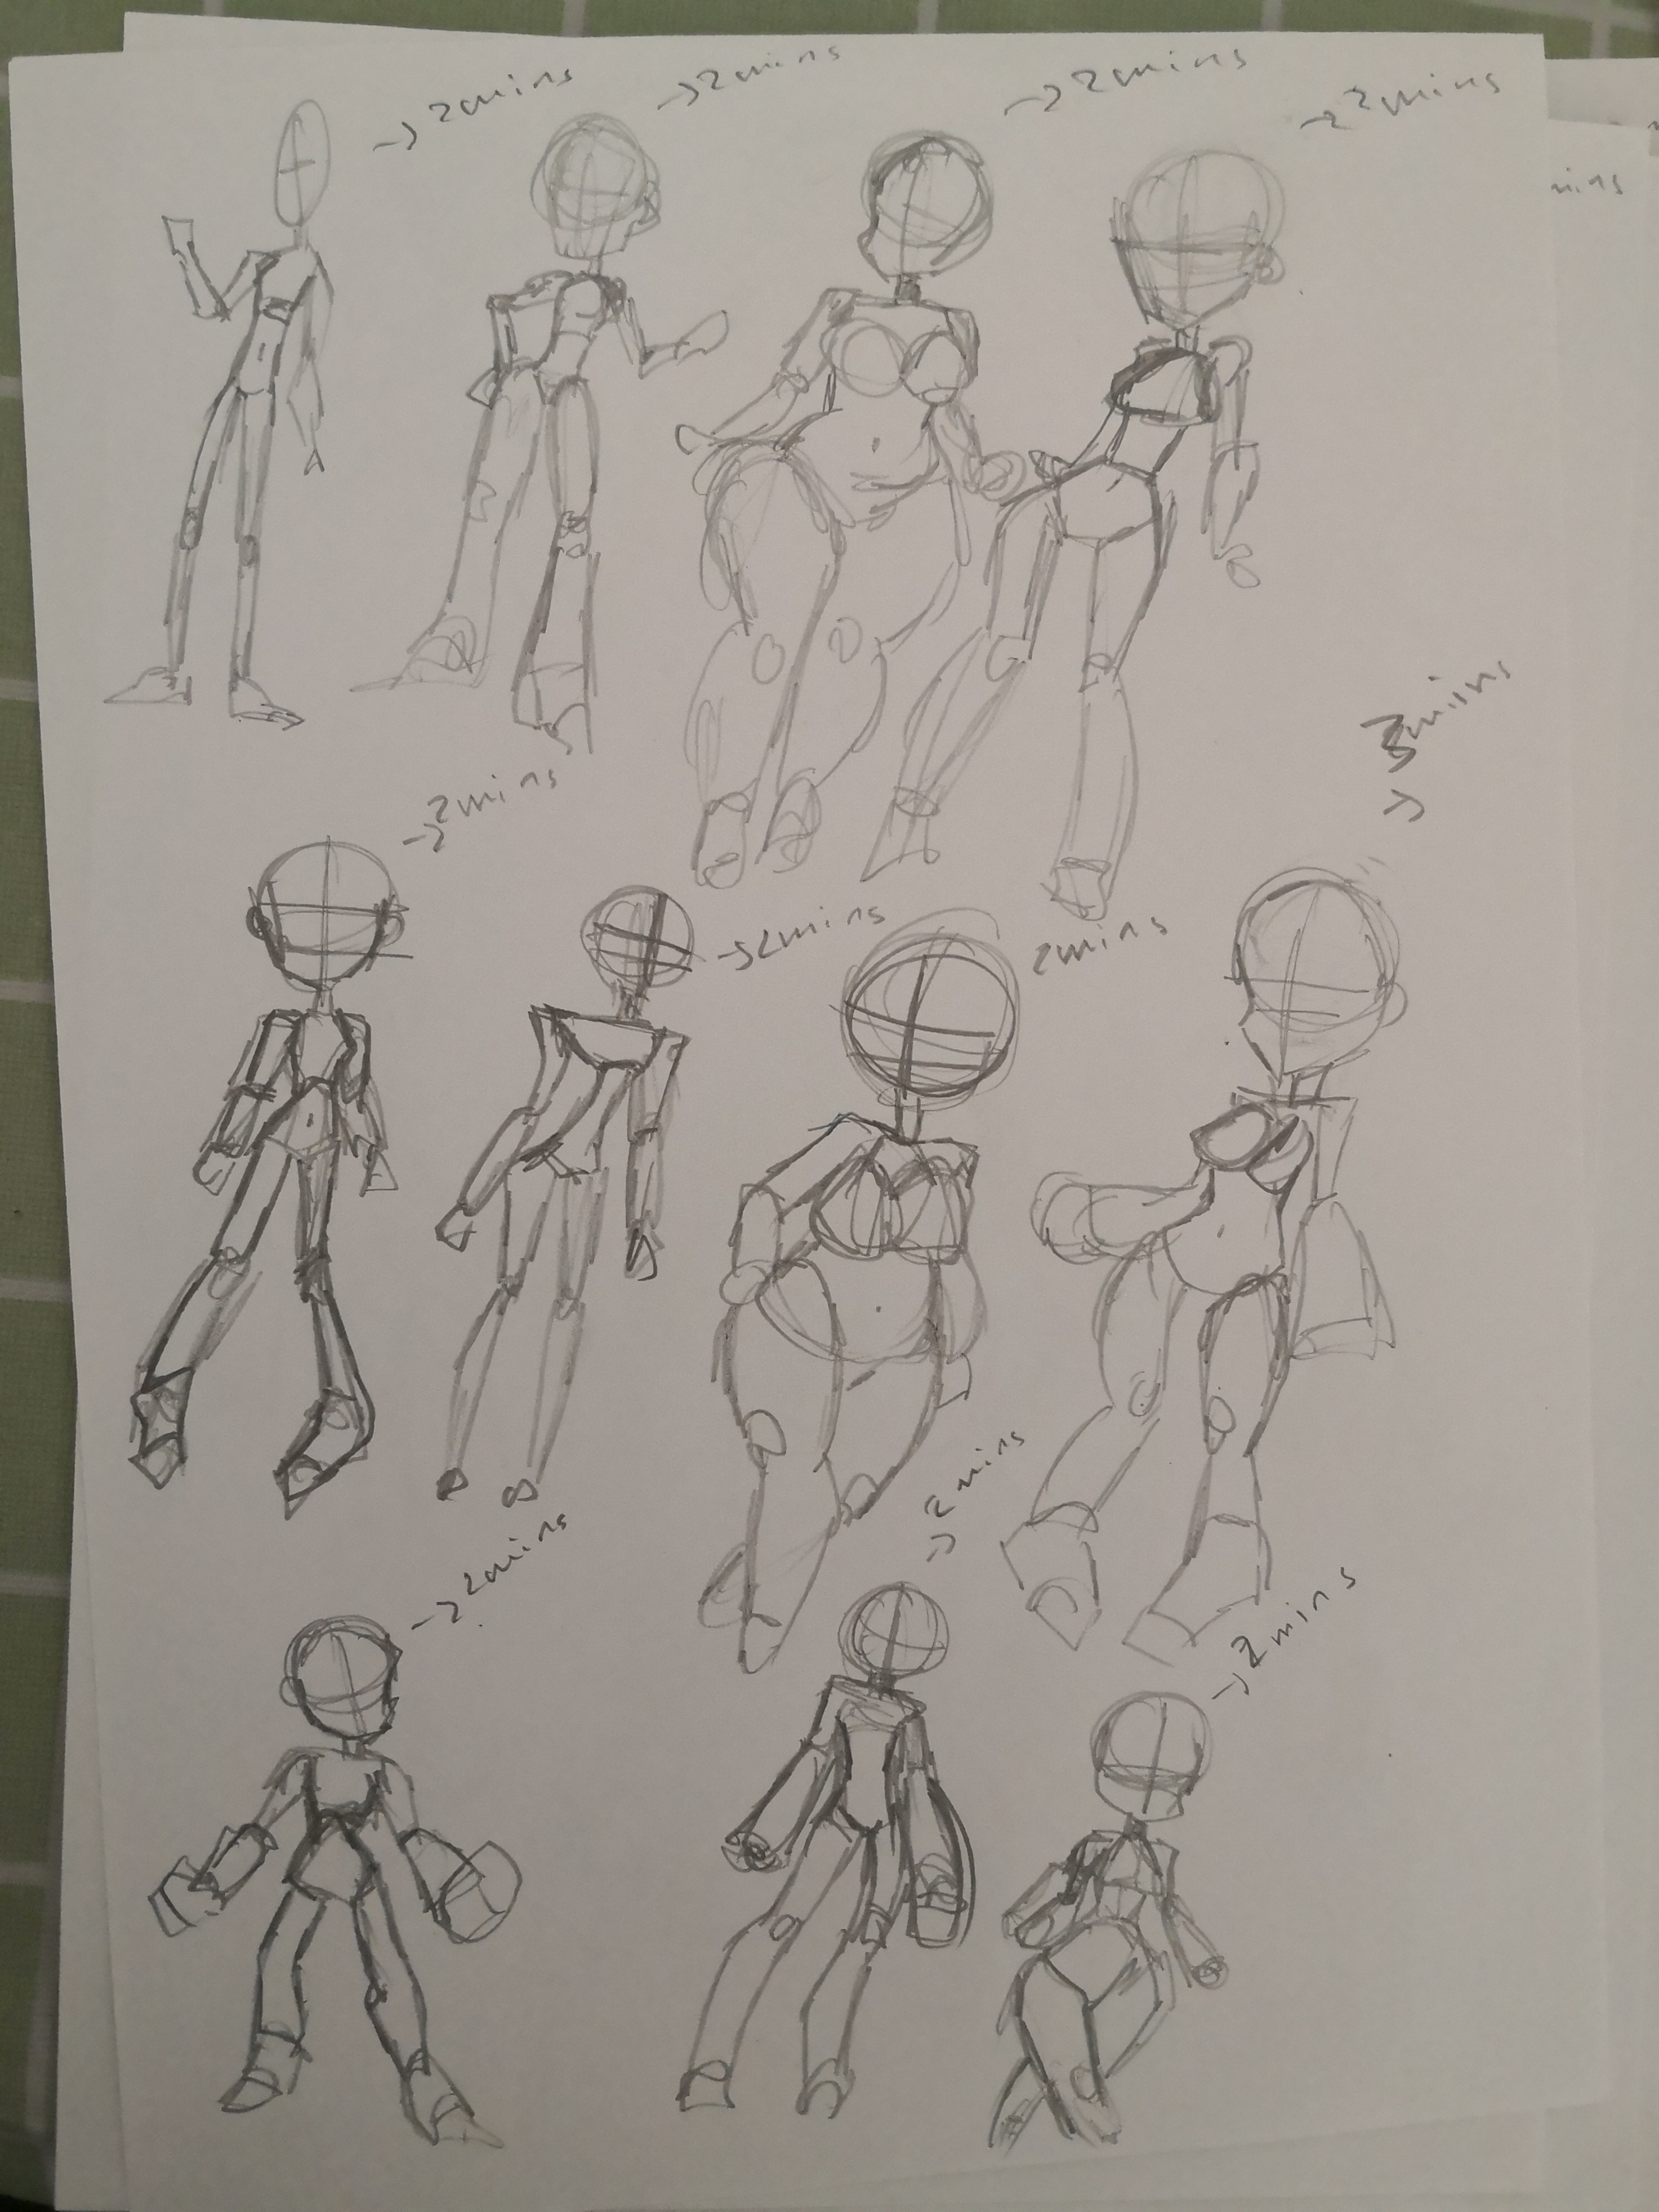 →2mins
→2mins
→2mins
→2mins
mins
3mins
→
→2mins
→2mins
2mins
→2mins
→2mins
→2mins